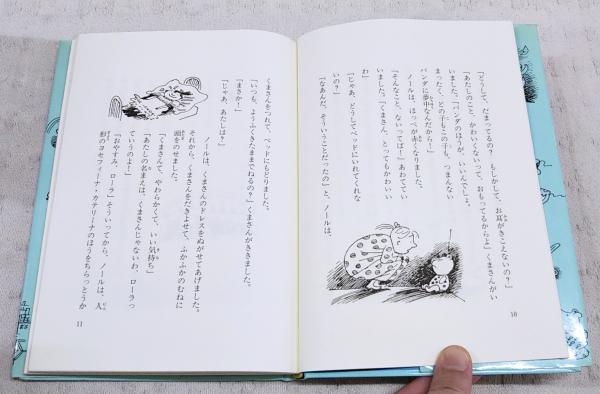 「どうして、だまってるの？　もしかして、お耳がきこえないの？」
「あたしのこと、かわいくないって、おもってるからよ」くまさんがい
いました。「パンダのほうが、いいんでしょ。
まったく、どの子もこの子も、つまんない
パンダに夢中なんだから！」
ノールは、ほっぺが赤くなりました。
「そんなこと、ないってば！」あわててい
いました。「くまさん、とってもかわいい
わ」
「じゃあ、どうしてベッドにいれてくれな
いの？」
「なあんだ、そういうことだったの」と、ノールは、
10
くまさんをつれて、ベッドにもどりました。
「いつも、ようふくきたままでねるの？」くまさんがききました。
「まさか！」
「じゃあ、あたしは？」
ノールは、くまさんのドレスをぬがせてあげました。
それから、くまさんをだきよせて、ふかふかのむねに
頭をのせました。
「くまさんて、やわらかくて、いい気持ち」
「あたしの名まえは、くまさんじゃないわ、ローラっ
ていうのよ！」
「おやすみ、ローラ」そういってから、ノールは、人
形のヨセフィーナ・カテリーナのほうをちらっとうか
11